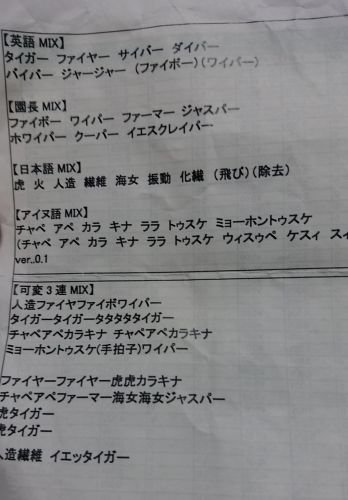 【英語 MIX】
タイガー ファイヤー サイバー ダイバー
バイバー ジャージャー (ファイボー)(ワイパー)
【園長 MIX】
ファイボー ワイパー ファーマー ジャスパー
ホワイパー クーパー イエスクレイパー
【日本語 MIX】
虎 火 人造 繊維 海女 振動 化繊 (飛び)(除去)
【アイヌ語 MIX】
チャペ アペ カラ キナ ララ トゥスケ ミョーホントゥスケ
(チャペ アペ カラ キナ ララ トゥスケ ウィスゥペ ケスィ スィ
ver..0.1
【可変 3 連 MIX】
人造ファイヤファイボワイパー
タイガータイガータタタタタイガー
チャペアペカラキナ チャペアペカラキナ
ミョーホントゥスケ(手拍子)ワイパー
ファイヤーファイヤー虎虎カラキナ
チャペアペファーマー海女海女ジャスパー
虎タイガー
虎タイガー
人造繊維 イエッタイガー